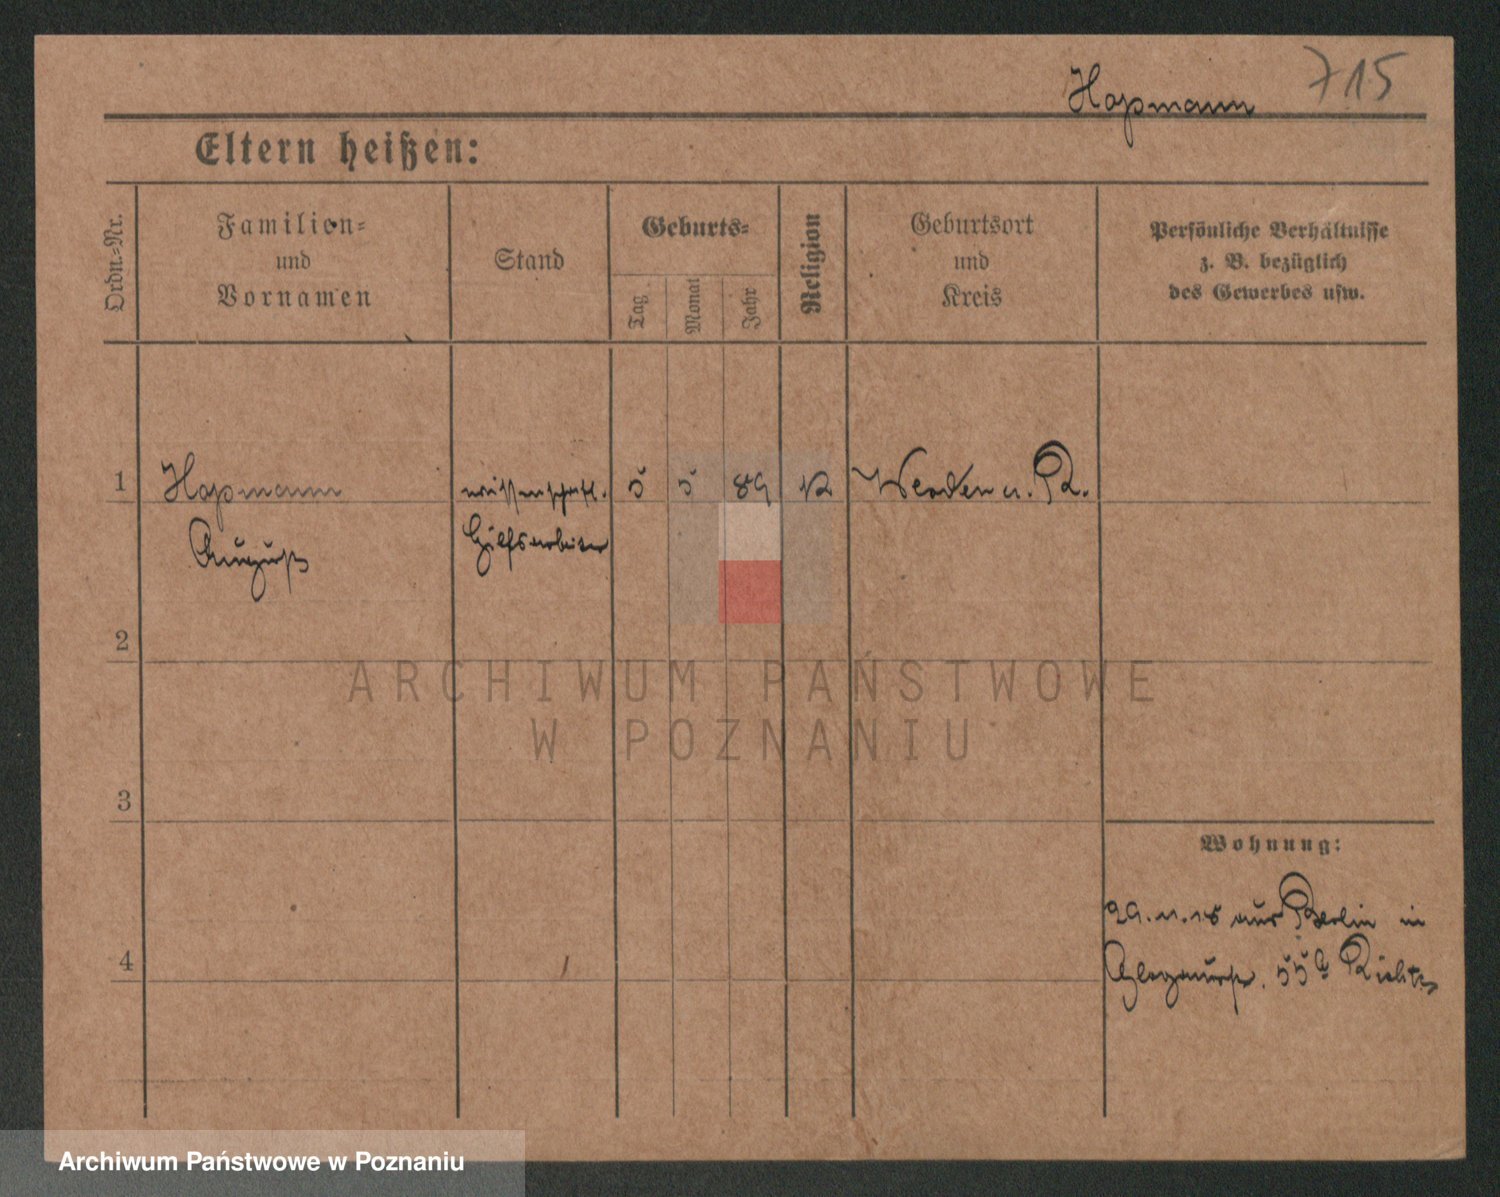 Hopmann 715
Eltern heißen:
Ordn.-Nr.
Familien-
und
Vornamen
Stand
Geburts-
Tag
Monat
Jahr
Religion
Geburtsort
und
Kreis
Persönliche Verhältnisse
z. B. bezüglich
des Gewerbes usw.
1 Hopmann wissenschftl. 5 5 89 K Werden a. R.
August Hilfsarbeiter
2
ARCHIWUM PAŃSTWOWE
W POZNANIU
3
Wohnung:
29.11.15 aus Berlin in
4 55a Richter
Archiwum Państwowe w Poznaniu